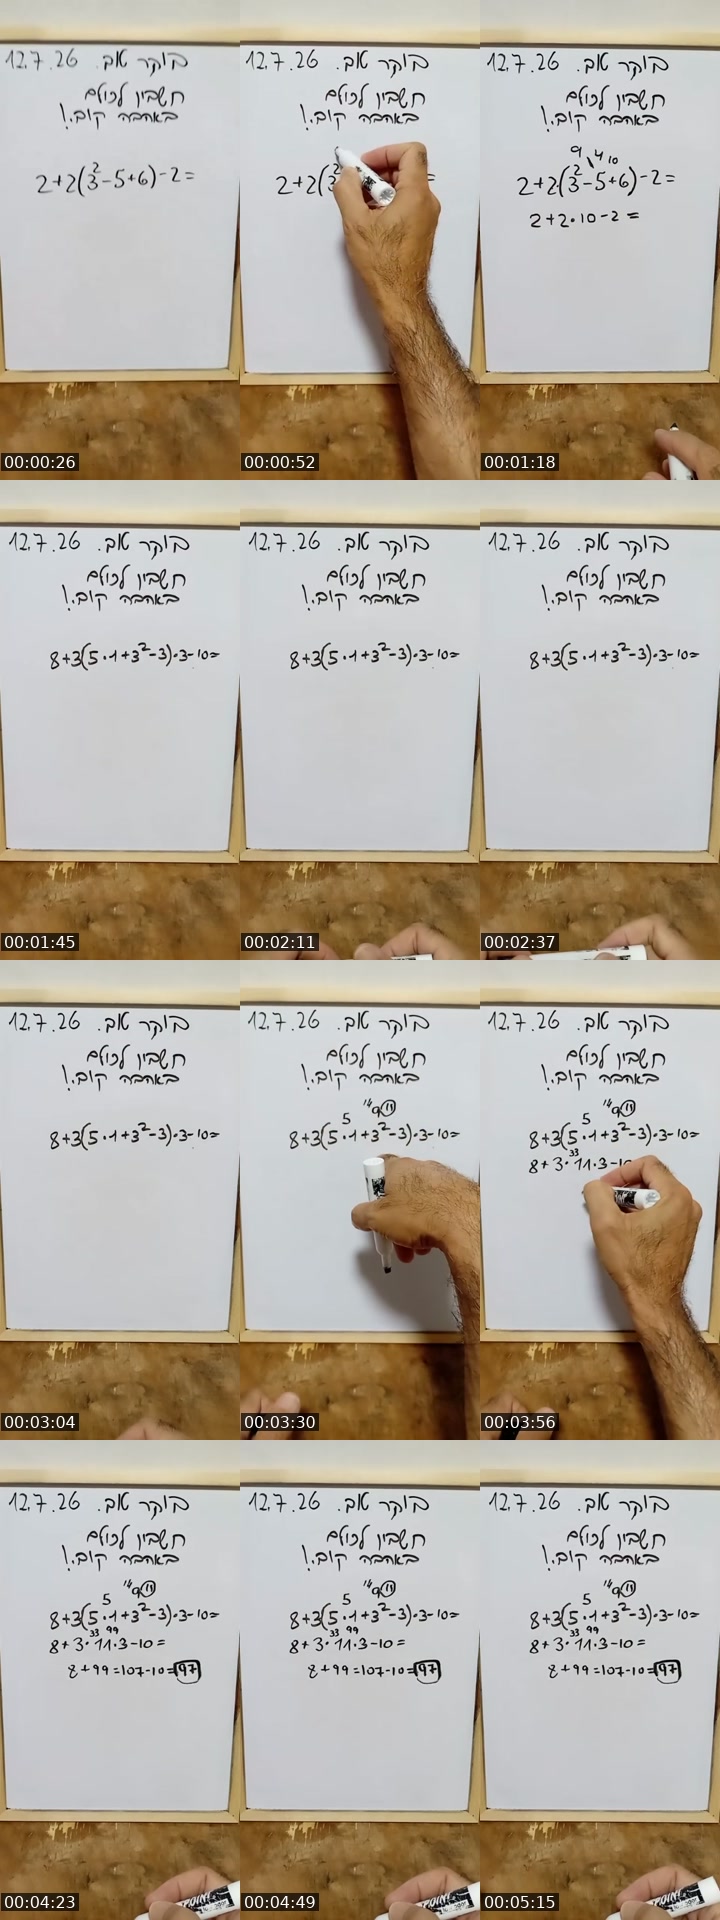 12.7.26 .בוקר טוב
חשבון לכולם
באהבה קובי.!
2+2(3²-5+6)-2=
00:00:26
12.7.26 .בוקר טוב
חשבון לכולם
באהבה קובי.!
2+2(
=
00:00:52
12.7.26 .בוקר טוב
חשבון לכולם
באהבה קובי.!
9 4 10
2+2·(3²-5+6)-2=
2+2·10-2=
00:01:18
12.7.26 .בוקר טוב
חשבון לכולם
באהבה קובי.!
8+3(5·1+3²-3)·3-10=
00:01:45
12.7.26 .בוקר טוב
חשבון לכולם
באהבה קובי.!
8+3(5·1+3²-3)·3-10=
00:02:11
12.7.26 .בוקר טוב
חשבון לכולם
באהבה קובי.!
8+3(5·1+3²-3)·3-10=
00:02:37
12.7.26 .בוקר טוב
חשבון לכולם
באהבה קובי.!
8+3(5·1+3²-3)·3-10=
00:03:04
12.7.26 .בוקר טוב
חשבון לכולם
באהבה קובי.!
5 14 9 11
8+3(5·1+3²-3)·3-10=
00:03:30
12.7.26 .בוקר טוב
חשבון לכולם
באהבה קובי.!
5 14 9 11
8+3(5·1+3²-3)·3-10=
33
8+3·11·3-10
00:03:56
12.7.26 .בוקר טוב
חשבון לכולם
באהבה קובי.!
5 14 9 11
8+3(5·1+3²-3)·3-10=
33 99
8+3·11·3-10=
8+99=107-10=97
00:04:23
12.7.26 .בוקר טוב
חשבון לכולם
באהבה קובי.!
5 14 9 11
8+3(5·1+3²-3)·3-10=
33 99
8+3·11·3-10=
8+99=107-10=97
00:04:49
12.7.26 .בוקר טוב
חשבון לכולם
באהבה קובי.!
5 14 9 11
8+3(5·1+3²-3)·3-10=
33 99
8+3·11·3-10=
8+99=107-10=97
00:05:15